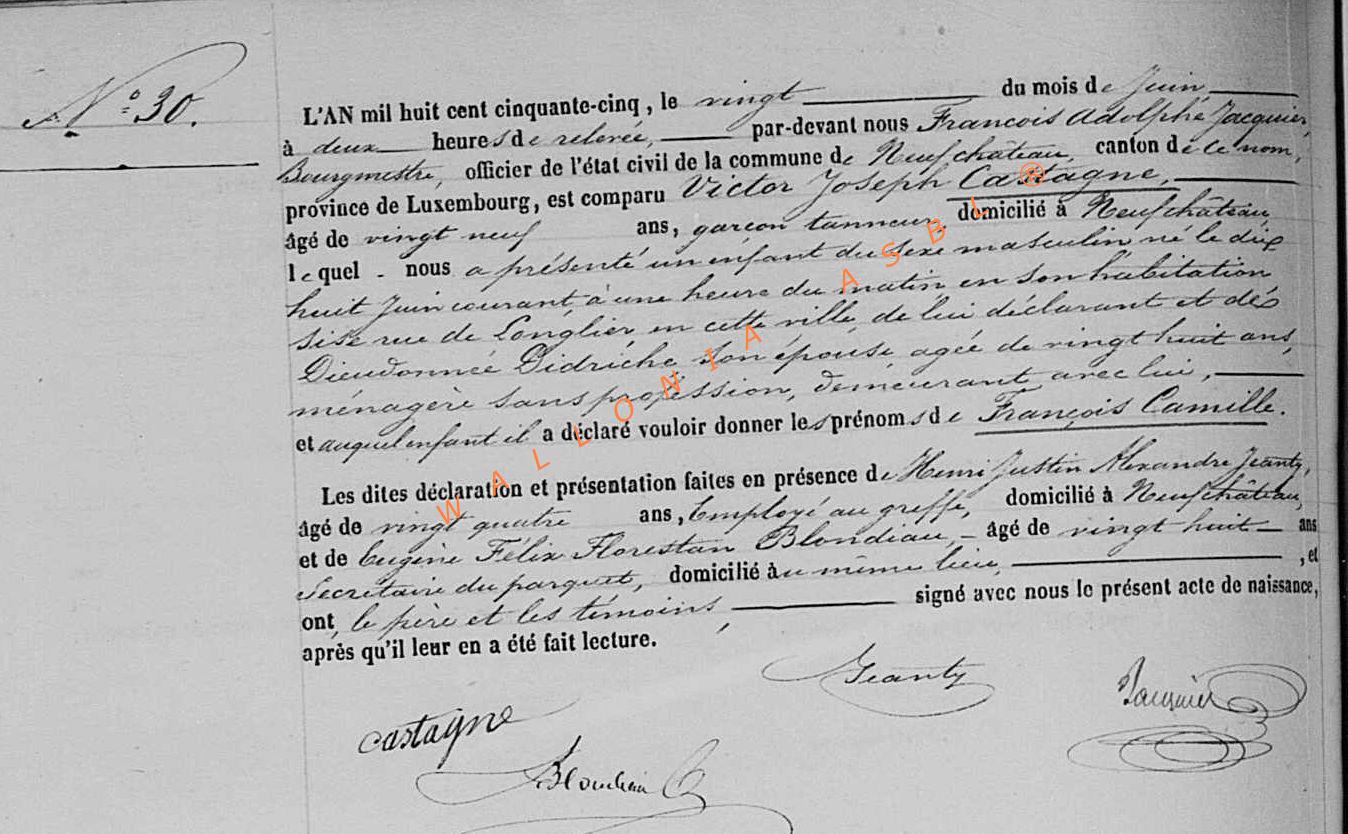 N.° 30.
L'AN mil huit cent cinquante-cinq, le vingt du mois de Juin
à deux heures de relevée, par-devant nous François Adolphe Jacquier,
Bourgmestre, officier de l'état civil de la commune de Neufchateau, canton de ce nom,
province de Luxembourg, est comparu Victor Joseph Castagne,
âgé de vingt neuf ans, garçon tanneur, domicilié à Neufchâteau,
lequel - nous a présenté un enfant du sexe masculin né le dix
huit Juin courant, à une heure du matin en son habitation
sise rue de Longlier, en cette ville, de lui déclarant et de
Dieudonnée Didriche son épouse agée de vingt huit ans,
ménagère sans profession, demeurant avec lui,
et auquel enfant il a déclaré vouloir donner les prénoms de François Camille.
Les dites déclaration et présentation faites en présence de Henri Justin Alexandre Jeanty,
âgé de vingt quatre ans, Employé au greffe, domicilié à Neufchâteau,
et de Eugène Félix Florestan Blondiau, - âgé de vingt huit ans
Secrétaire du parquet, domicilié au même lieu, , et
ont, le père et les témoins, signé avec nous le présent acte de naissance,
après qu'il leur en a été fait lecture.
Jeanty
Jacquier
castagne
Blondiau
WALLONIA ASBL ®